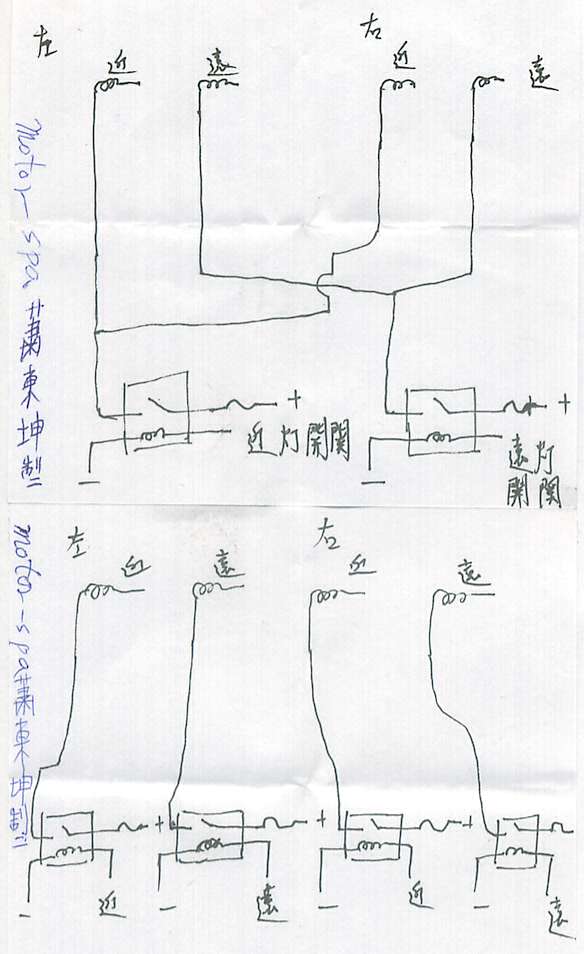 左
右
近
遠
近
遠
motor-spa 蕭東坤製
+
+
近灯開関
遠灯
開関
−
−
左
右
近
遠
近
遠
motor-spa 蕭東坤
+
+
+
−
−
−
−
近
遠
近
遠